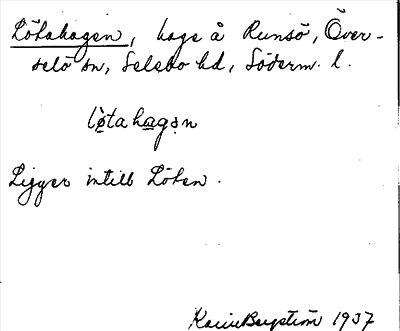 Lötahagen, hage å Runsö, Över-
selö sn, Selebo hd, Söderm. l.
lø̣tahagən
Ligger intill Löten.
Karin Bergström 1937